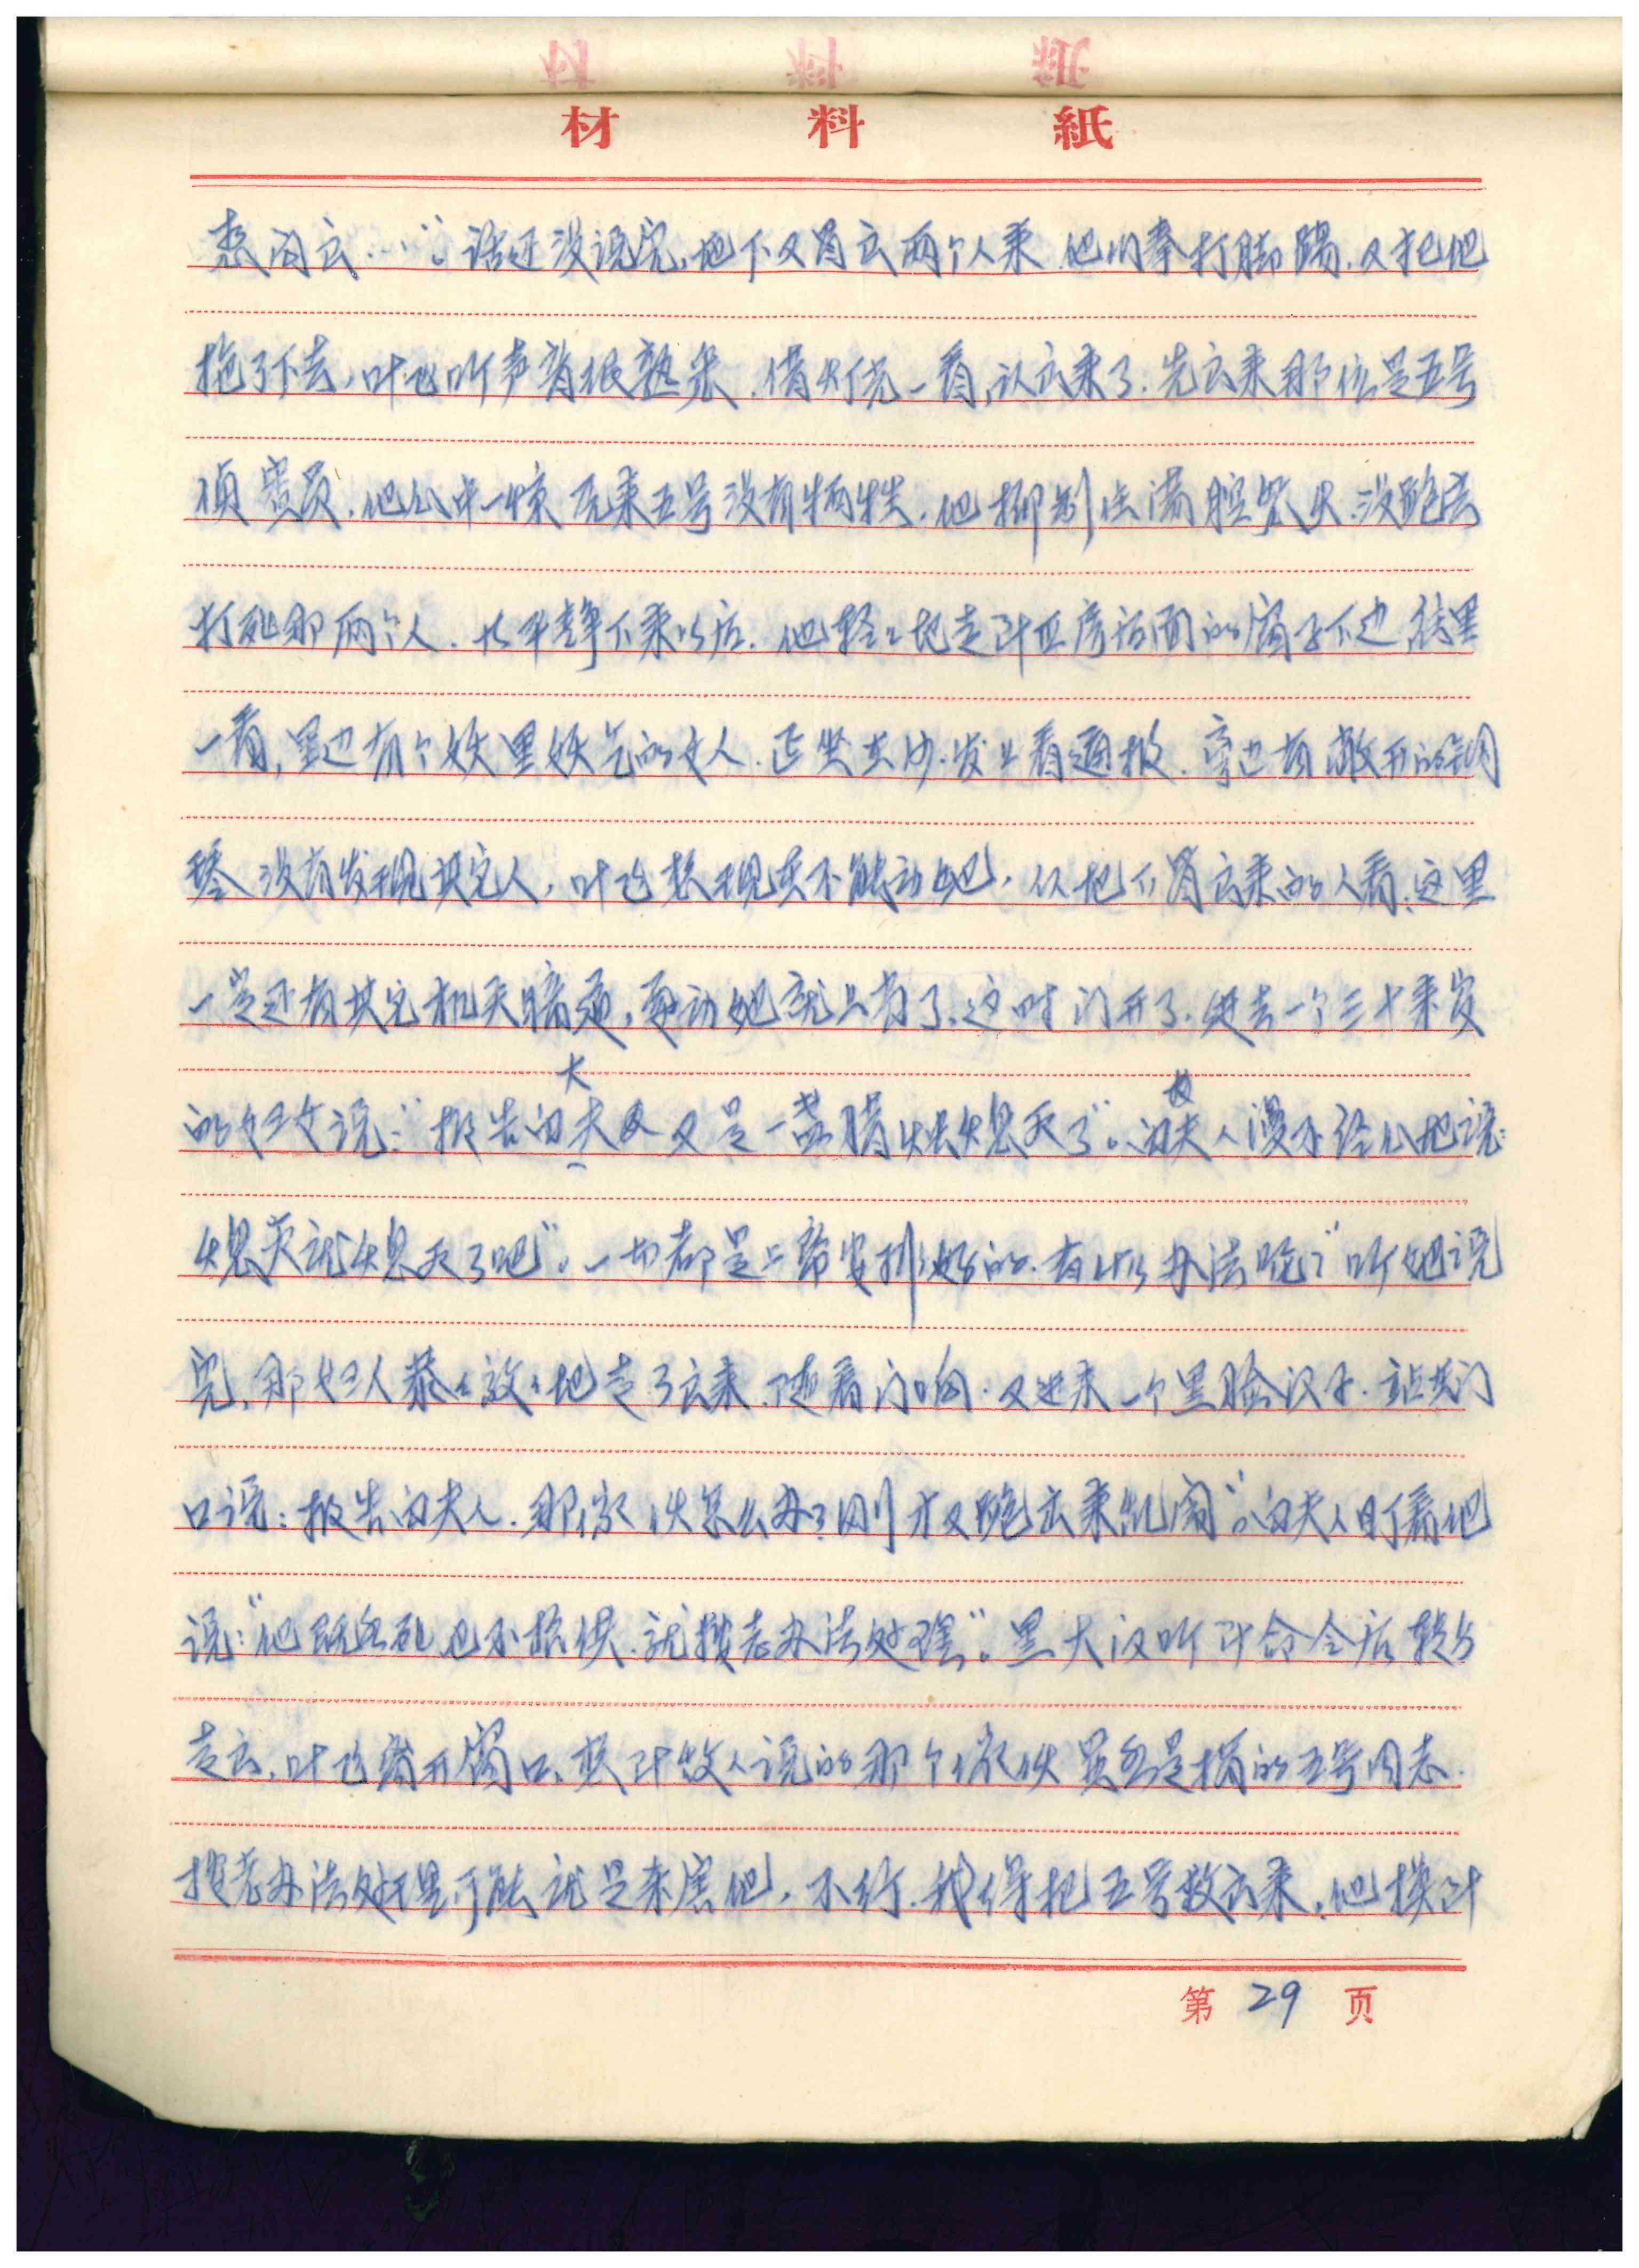 材料紙
话还没说完,地下又冒出两个人来.他们拳打脚踢.又把他
拖了下去,叶飞听声音很熟悉.借灯光一看,认出来了.先出来那位是五号
侦察员.他心中一惊 原来五号没有牺牲.他抑制住满腔怒火.没跑去
打死那两个人.大平静下来以后.他轻轻地走到正房西间的窗子下边,往里
一看,里边有个妖里妖气的女人.正坐在沙发上看通报.旁边有敞开的钢
琴 没有发现其它人,叶飞想现在不能动她,从地下冒出来的人看,这里
一定还有其它机关暗道,再动她就上当了.这时门开了.进去一个三十来岁
的妇女说:"报告向大夫人又是一盏腊火焦熄灭了"。向夫人漫不经心地说:
熄灭就熄灭了吧"。一切都是上帝安排好的.有什么办法呢?"听她说
完,那妇人恭恭敬敬地走了出来.随着门响.又进来一个黑脸汉子.站在门
口说:报告向夫人.那家伙怎么办?刚才又跑出来乱闹"。向夫人盯着他
说:"他既然死也不招供.就按老办法处理"。黑大汉听到命令后转身
走出.叶飞离开窗口,想到敌人说的那个家伙 显然是指的五号同志.
按老办法处理可能就是杀害他,不行.我得把五号救出来,他摸到
第 29 页